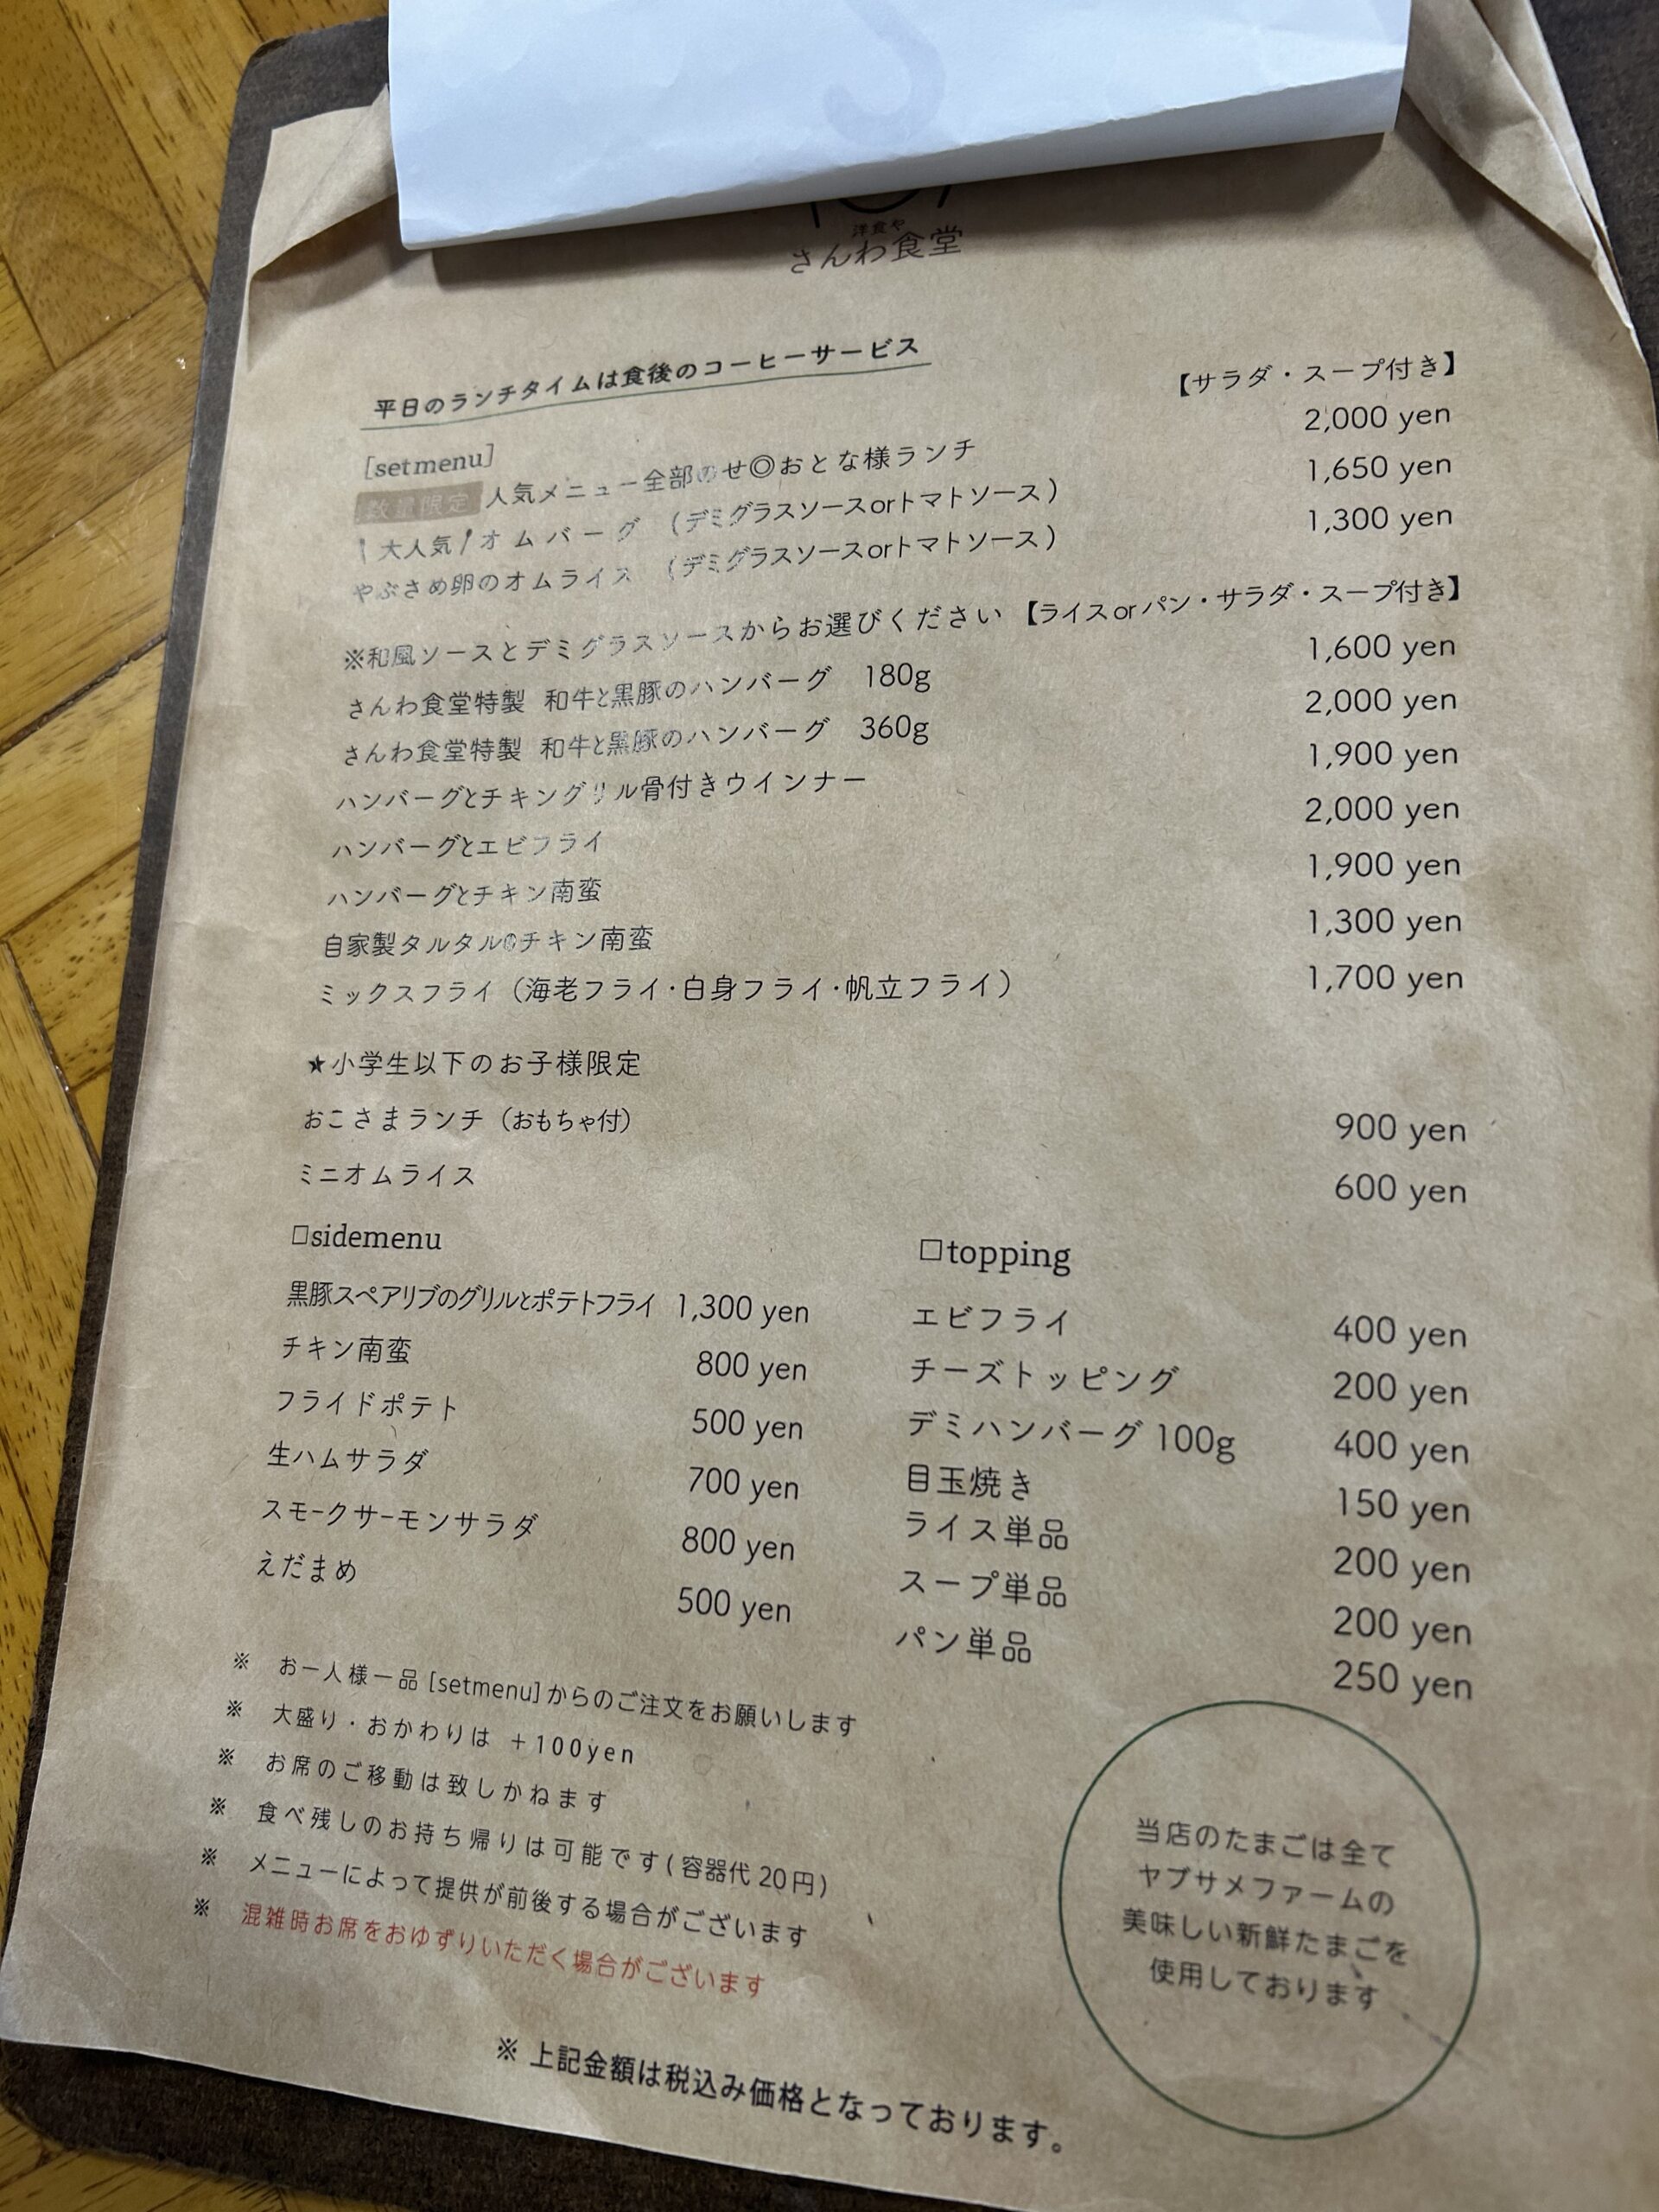 洋食や
さんわ食堂
平日のランチタイムは食後のコーヒーサービス
【サラダ・スープ付き】
[setmenu]
数量限定 人気メニュー全部のせ◎おとな様ランチ 2,000 yen
大人気 オムバーグ (デミグラスソースorトマトソース) 1,650 yen
やぶさめ卵のオムライス (デミグラスソースorトマトソース) 1,300 yen
※和風ソースとデミグラスソースからお選びください 【ライスorパン・サラダ・スープ付き】
さんわ食堂特製 和牛と黒豚のハンバーグ 180g 1,600 yen
さんわ食堂特製 和牛と黒豚のハンバーグ 360g 2,000 yen
ハンバーグとチキングリル骨付きウインナー 1,900 yen
ハンバーグとエビフライ 2,000 yen
ハンバーグとチキン南蛮 1,900 yen
自家製タルタルのチキン南蛮 1,300 yen
ミックスフライ(海老フライ・白身フライ・帆立フライ) 1,700 yen
★小学生以下のお子様限定
おこさまランチ(おもちゃ付) 900 yen
ミニオムライス 600 yen
□sidemenu
黒豚スペアリブのグリルとポテトフライ 1,300 yen
チキン南蛮 800 yen
フライドポテト 500 yen
生ハムサラダ 700 yen
スモークサーモンサラダ 800 yen
えだまめ 500 yen
□topping
エビフライ 400 yen
チーズトッピング 200 yen
デミハンバーグ 100g 400 yen
目玉焼き 150 yen
ライス単品 200 yen
スープ単品 200 yen
パン単品 250 yen
※ お一人様一品 [setmenu] からのご注文をお願いします
※ 大盛り・おかわりは +100yen
※ お席のご移動は致しかねます
※ 食べ残しのお持ち帰りは可能です(容器代20円)
※ メニューによって提供が前後する場合がございます
※ 混雑時お席をおゆずりいただく場合がございます
当店のたまごは全て
ヤブサメファームの
美味しい新鮮たまごを
使用しております
※ 上記金額は税込み価格となっております。